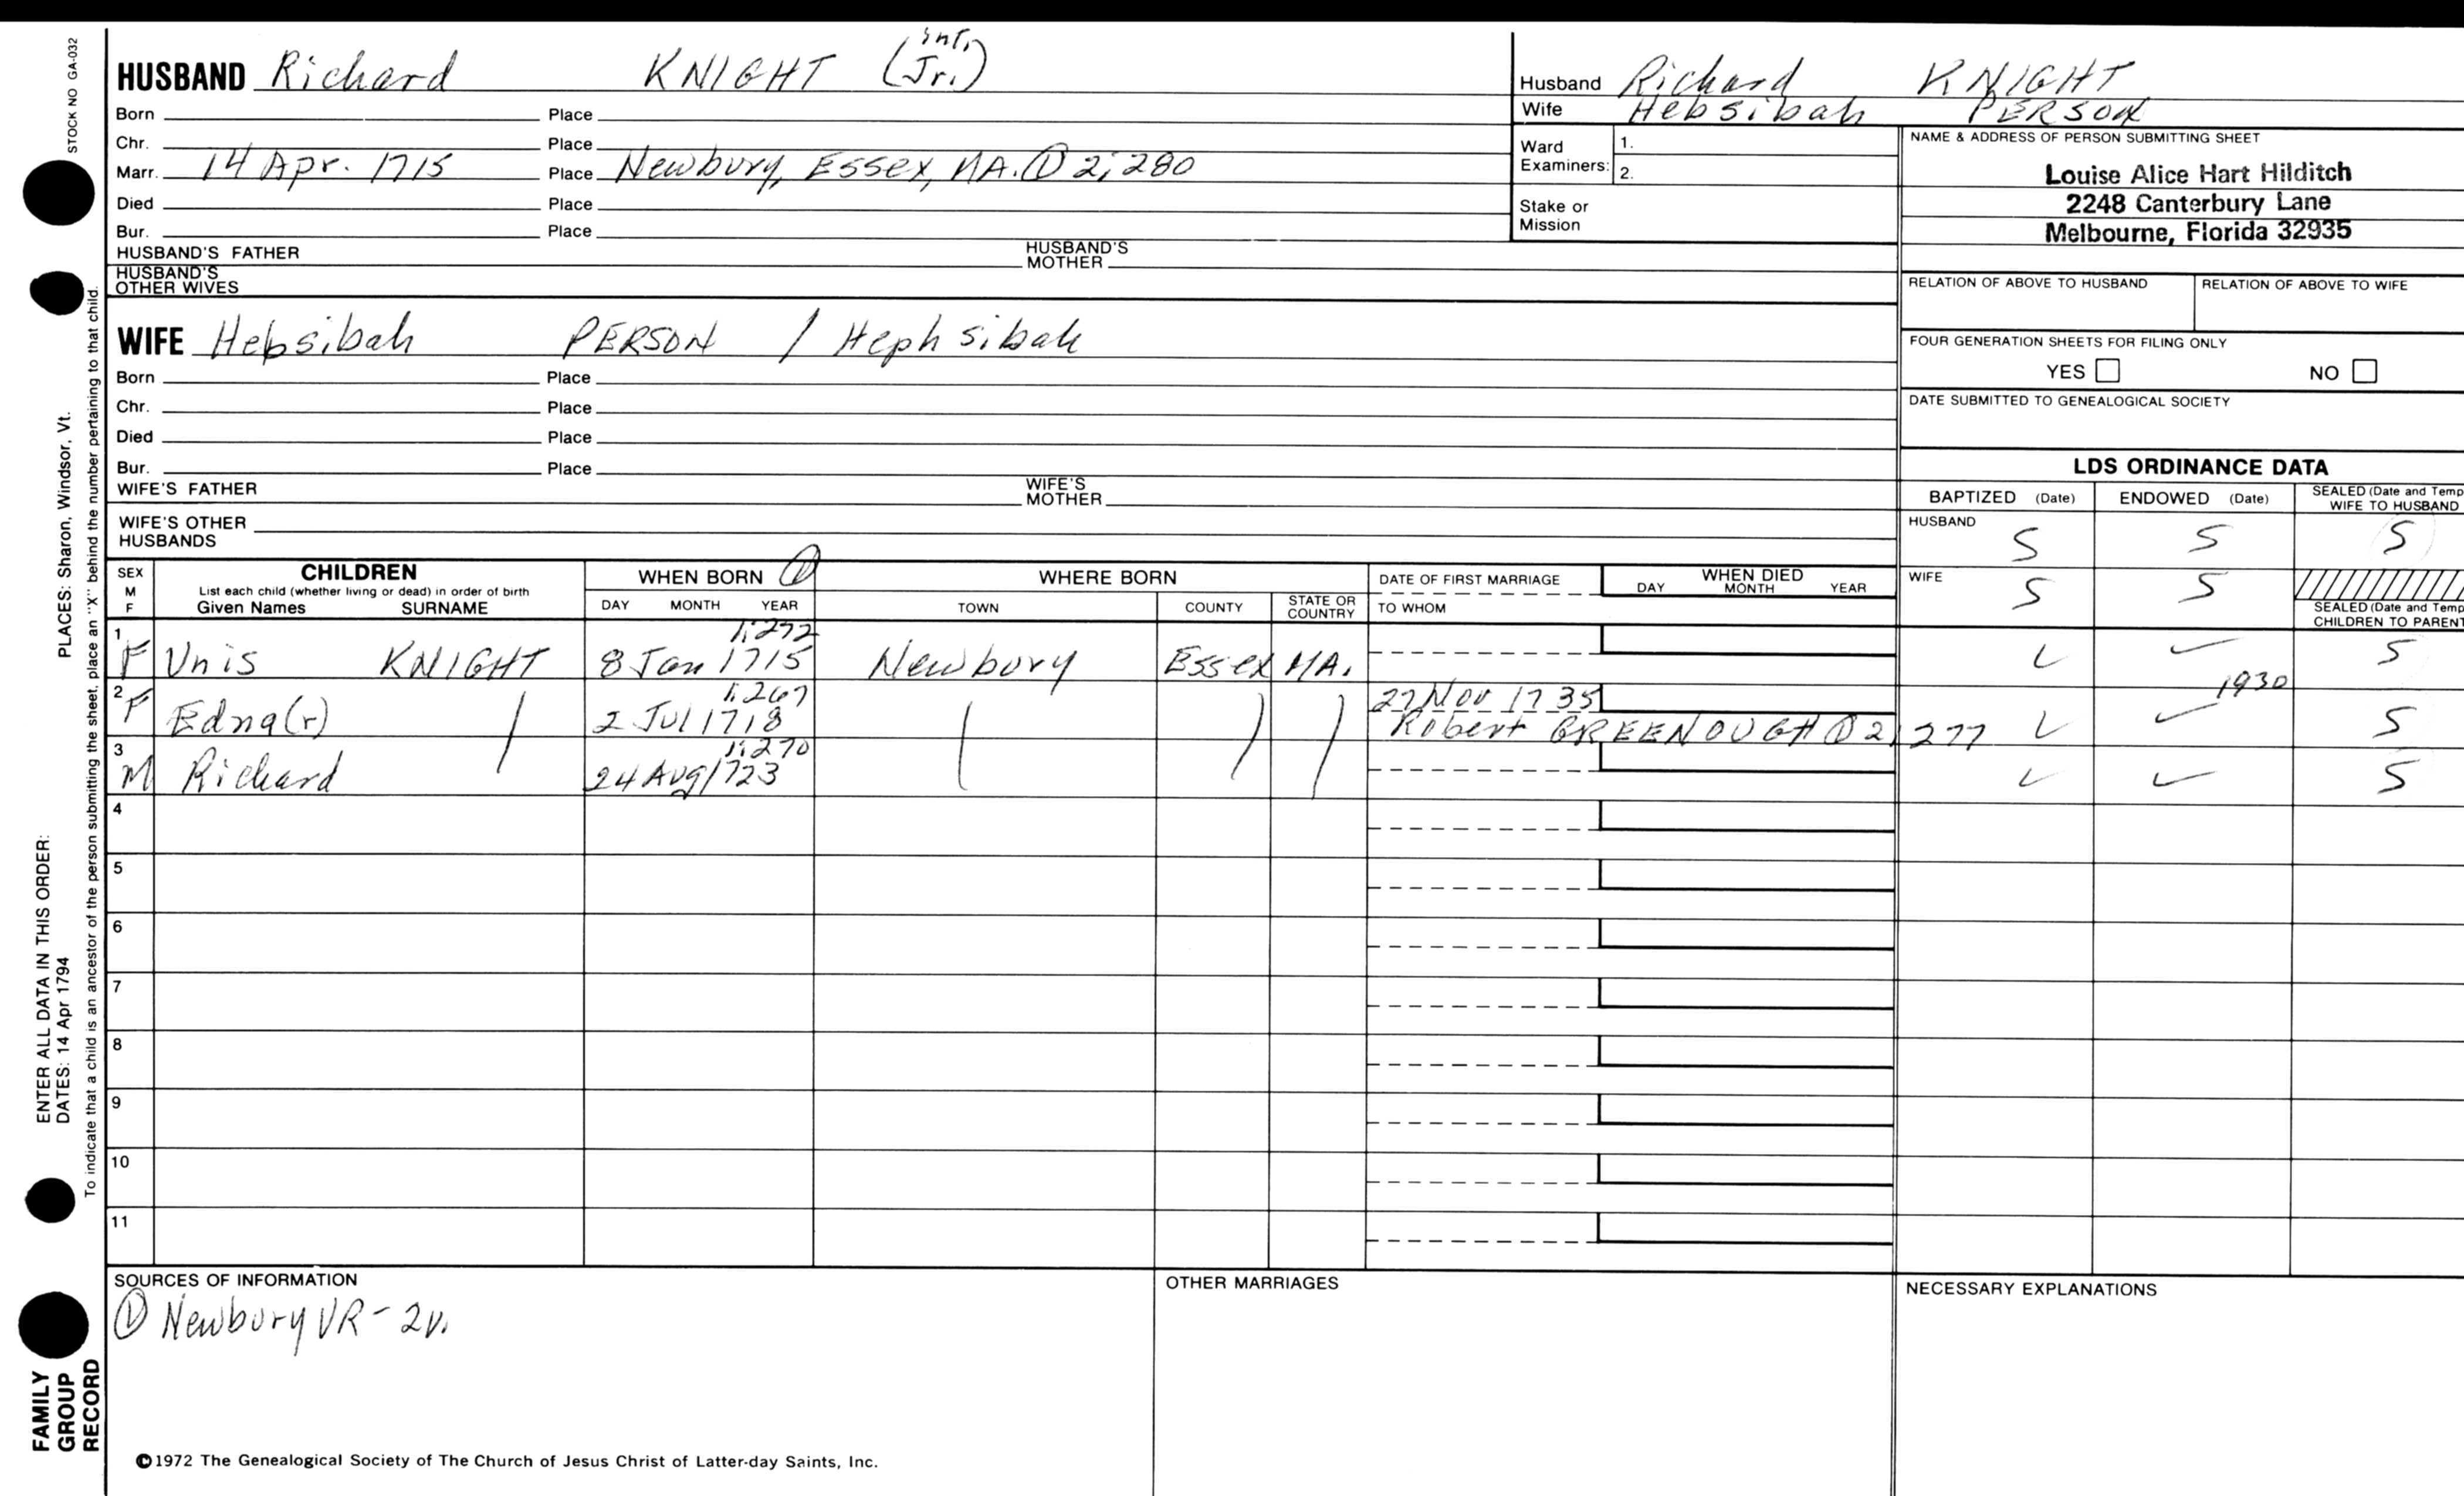 STOCK NO GA-032
HUSBAND Richard KNIGHT (Jr.) int.
Born Place
Chr. Place
Marr. 14 Apr. 1715 Place Newbury, Essex, MA. ① 2;280
Died Place
Bur. Place
HUSBAND'S FATHER HUSBAND'S MOTHER
HUSBAND'S OTHER WIVES
WIFE Hebsibah PERSON / Hephsibah
Born Place
Chr. Place
Died Place
Bur. Place
WIFE'S FATHER WIFE'S MOTHER
WIFE'S OTHER HUSBANDS
Husband Richard KNIGHT
Wife Hebsibah PERSON
Ward Examiners: 1.
2.
Stake or Mission
NAME & ADDRESS OF PERSON SUBMITTING SHEET
Louise Alice Hart Hilditch
2248 Canterbury Lane
Melbourne, Florida 32935
RELATION OF ABOVE TO HUSBAND RELATION OF ABOVE TO WIFE
FOUR GENERATION SHEETS FOR FILING ONLY
YES NO
DATE SUBMITTED TO GENEALOGICAL SOCIETY
LDS ORDINANCE DATA
BAPTIZED (Date) ENDOWED (Date) SEALED (Date and Temp
WIFE TO HUSBAND
HUSBAND S S S
WIFE S S
SEALED (Date and Temp
CHILDREN TO PARENT
SEX M F CHILDREN WHEN BORN ① WHERE BORN DATE OF FIRST MARRIAGE WHEN DIED
List each child (whether living or dead) in order of birth
Given Names SURNAME DAY MONTH YEAR TOWN COUNTY STATE OR COUNTRY TO WHOM DAY MONTH YEAR
1 F Unis KNIGHT 8 Jan 1715 1;272 Newbury Essex MA. ✓ ✓ S
2 F Edna(r) 2 Jul 1718 1;267 27 Nov 1735 1930
Robert GREENOUGH ① 2;277 ✓ ✓ S
3 M Richard 24 Aug 1723 1;270 ✓ ✓ S
4
5
6
7
8
9
10
11
SOURCES OF INFORMATION
① Newbury VR - 2v.
OTHER MARRIAGES
NECESSARY EXPLANATIONS
©1972 The Genealogical Society of The Church of Jesus Christ of Latter-day Saints, Inc.
ENTER ALL DATA IN THIS ORDER:
DATES: 14 Apr 1794 PLACES: Sharon, Windsor, Vt.
To indicate that a child is an ancestor of the person submitting the sheet, place an "X" behind the number pertaining to that child.
FAMILY
GROUP
RECORD